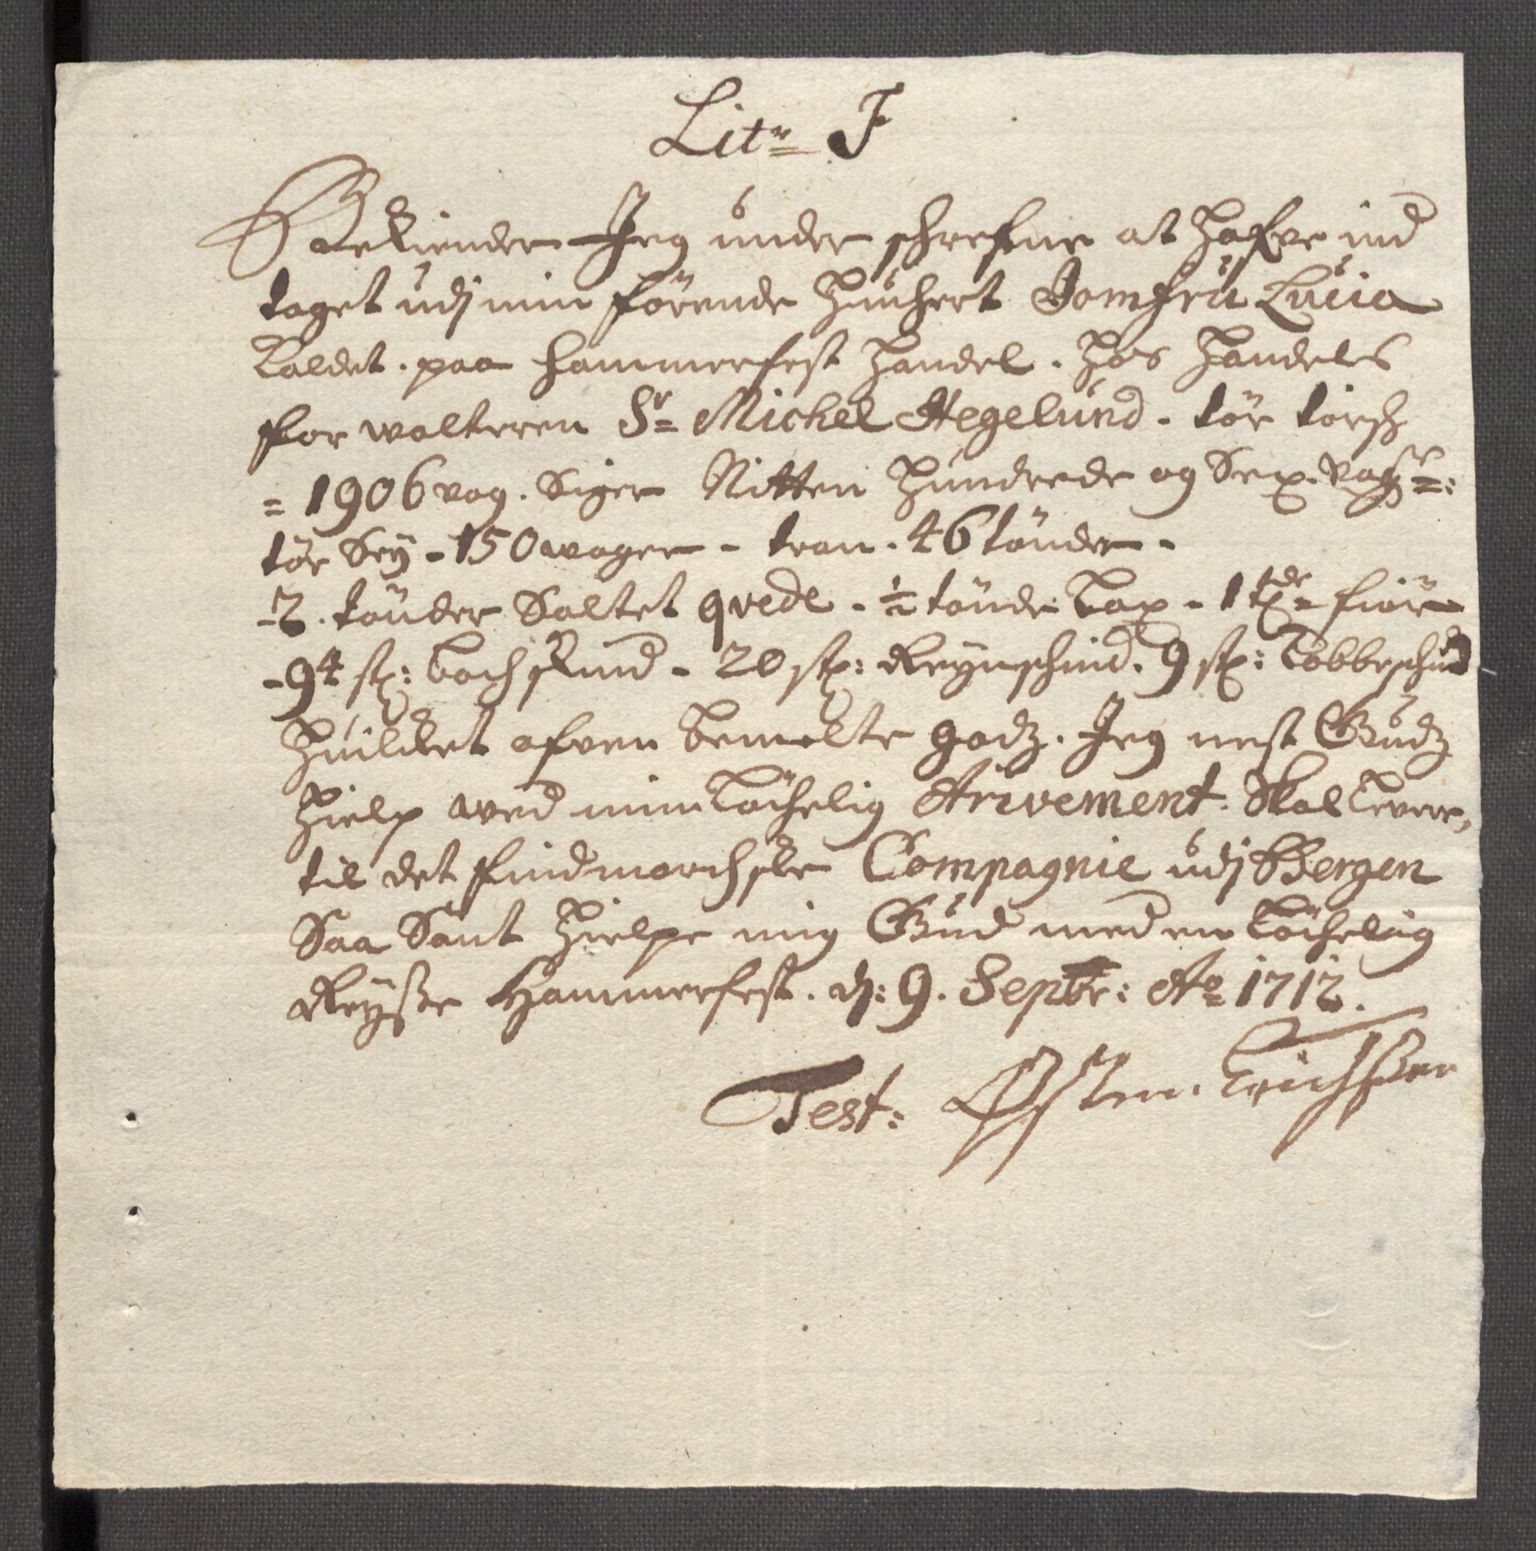 Litr F
Bekiender Jeg under schrefne at hafve ind
taget udj min förende Huchert Jomfru Lucia
kaldet. paa Hammerfest Handel. hos Handels
for walteren Sr Michel Hegelund. tör törsch
= 1906 vog. Siger Nitten Hundrede og Sex. voger:
tör Sey - 150 woger - tran. 46 tönder.
- 2. tönder Saltet qvede. ½ tönde lax - 1 tde fiör
- 94 st: bochskind - 20 st: Reynschind. 9 st: kobbeschind
Huilket ofven bemelte godz. Jeg nest Gudz
Hielp wed min löchelig Arivement. Skal levere,
til det findmarchske Compagnie udj Bergen
Saa Sant Hielpe mig Gud med en löchelig
Reysse Hammerfest. d: 9. Septbr: Ao 1712.
Test: Østen. Erichssen